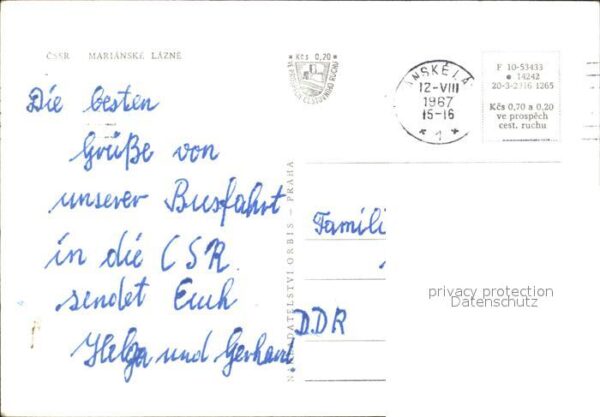 ČSSR MARIÁNSKÉ LÁZNĚ
Kčs 0,20
VE PROSPĚCH CESTOVNÍHO RUCHU
12-VIII
1967
15-16
* 1 *
F 10-53433
● 14242
20-3-2916 1265
Kčs 0,70 a 0,20
ve prospěch
cest. ruchu
Die besten
Grüße von
unserer Busfahrt
in die CSR
sendet Euch
Helga und Gerhard
NAKLADATELSTVÍ ORBIS – PRAHA
Famili
DDR
privacy protection
Datenschutz